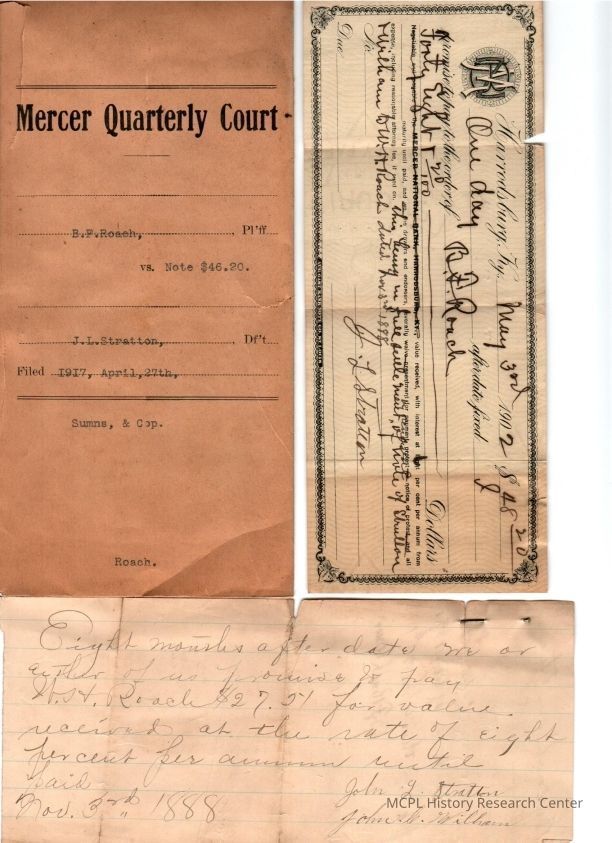 Mercer Quarterly Court
B.F.Roach, Pl'ff
vs. Note $46.20.
J.L.Stratton, Df't.
Filed 1917, April,27th,
Sumns, & Cop.
Roach.
Harrodsburg, Ky. May 3rd 1902 $ 48 20
One day after date
promise to pay to the order of B F Roach
Forty Eight & 20/100 Dollars
Negotiable and payable at the MERCER NATIONAL BANK, HARRODSBURG, KY. value received, with interest at per cent per annum from
maturity until paid, and
expense, including reasonable attorney fee, if
this being in full settlement of note of Stratton
& William to W.H. Roach dated Nov. 3rd 1888
No.
Due
J. L Stratton
Eight months after date we or
either of us promise to pay
W.H. Roach $27.51 for value
received at the rate of eight
percent per annum until
paid
Nov. 3rd 1888
John L. Stratton
John William
MCPL History Research Center